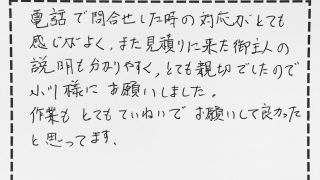 電話で問合せした時の対応がとても
感じがよく、また見積りに来た御主人の
説明も分かりやすく、とても親切でしたので
小川様にお願いしました。
作業もとてもていねいでお願いして良かった
と思ってます。